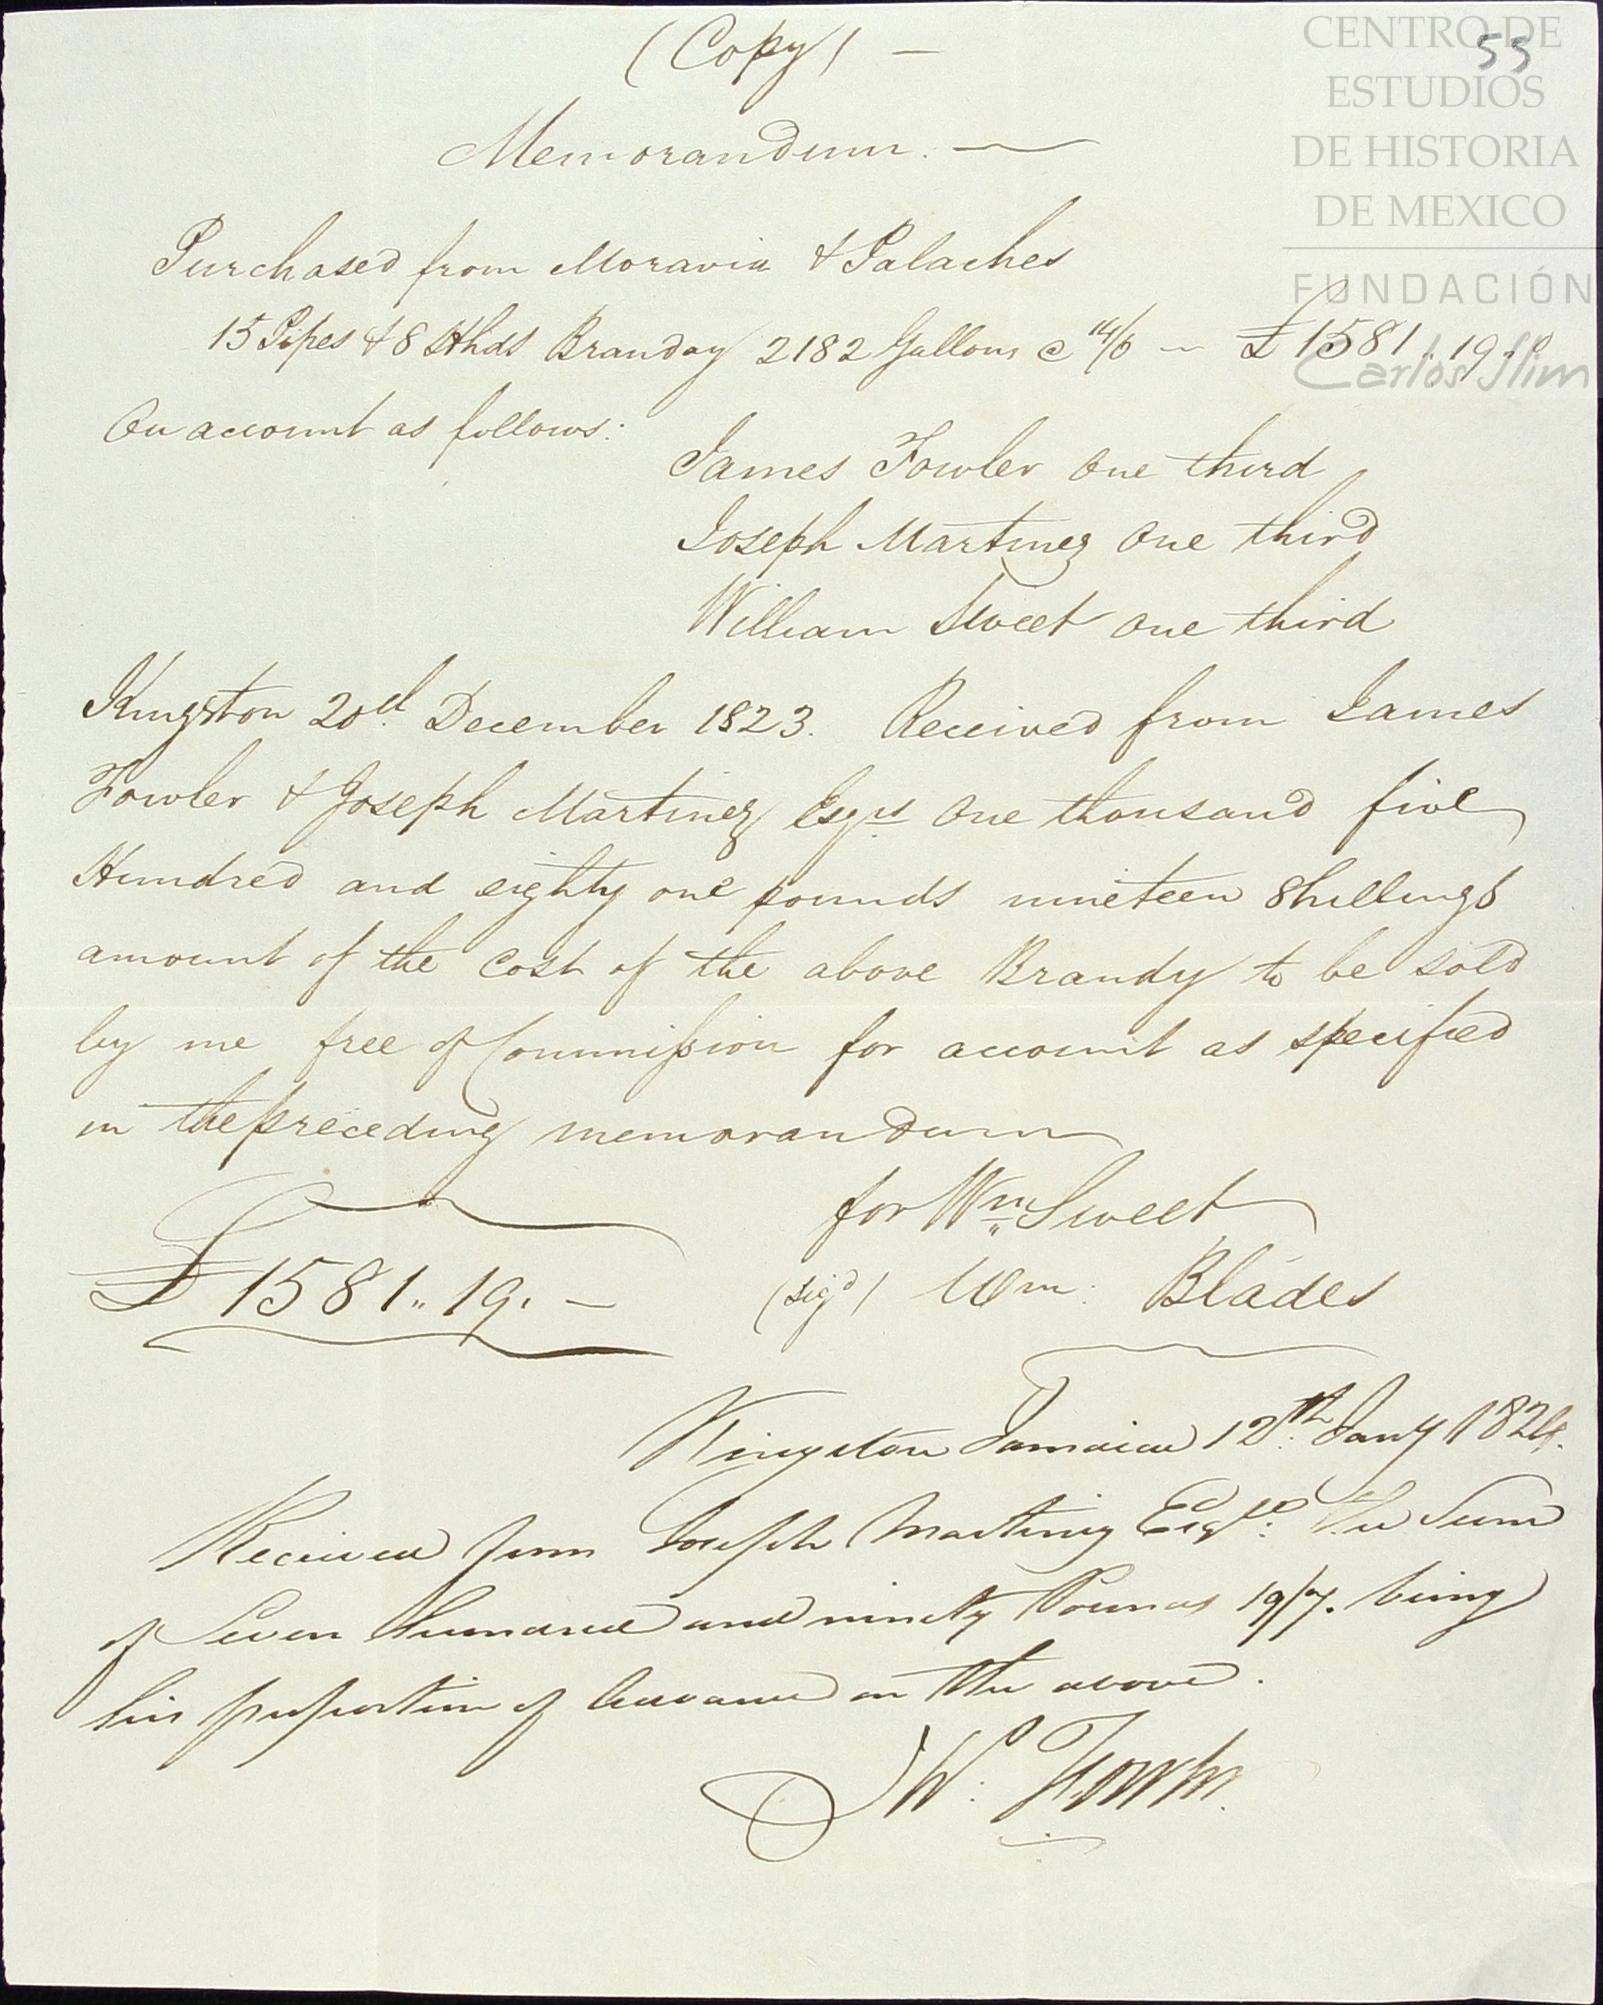 (Copy) —
55
Memorandum. —
Purchased from Moravia & Palaches
15 Pipes & 8 Hhds Branday 2182 Gallons @ 14/6 — £1581..19..0
On account as follows:
James Fowler One third
Joseph Martinez One third
William Sweet One third
Kingston 20d. December 1823. Received from James
Fowler & Joseph Martinez Esqrs One thousand five
Hundred and eighty one pounds nineteen Shillings
amount of the Cost of the above Brandy to be sold
by me free of Commission for account as specified
in the preceding memorandum
for Wm Sweet
£1581..19. — (sigd) Wm. Blades
Kingston Jamaica 12th. Jany 1824.
Received from Joseph Martinez Esqre. The Sum
of Seven hundred and ninety Pounds 19/7. being
his proportion of Advance on the above.
Fowler.
CENTRO DE
ESTUDIOS
DE HISTORIA
DE MEXICO
FUNDACIÓN
Carlos Slim